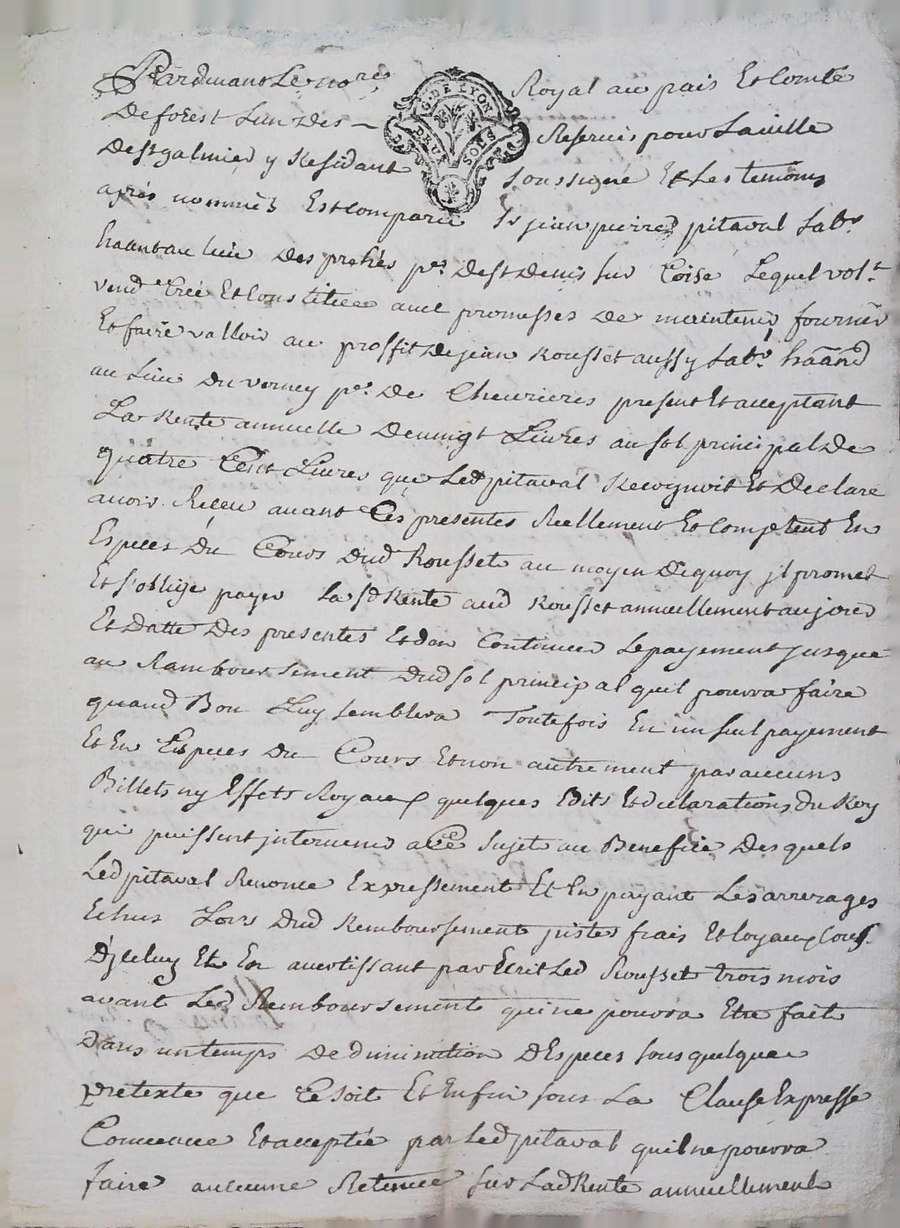 Pardevant Le no.re Royal au païs Et Comté
G. DE LYON
DEUX SOLS
De forest L'un Des Reservés pour La ville
De St galmier y Residant soussigné Et Les temoins
après nommés Est comparu Sr jean pierre pitaval Lab.r
haãnt au lieu Des prohés p.se De St Denis sur Coise Lequel vol.t
vend Créé Et Constitüe avec promesses De maintenir fournir
Et faire valloir au proffit De jean Rousset aussy Lab.r haãnt
au Lieu Du verney p.se De Chevrieres present Et acceptant
La Rente annuelle De vingt Livres au sol principal De
quatre Cent Livres que Led pitaval Recognoit Et Declare
avoir Receu avant Ces presentes Reellement Et Comptent En
Especes Du Cours Dud Rousset au moyen Dequoy jl promet
Et s'oblige payer La sd Rente aud Rousset annuellement au jour
Et Datte Des presentes Et d'en Continuer Le payement jusque
au Ramboursement Dud sol principal qu'il pourra faire
quand Bon Luy semblera Toutefois En un seul payement
Et En Especes Du Cours Et non autrement par aucuns
Billets ny Effets Royaux quelques Edits Et declarations Du Roy
qui puissent jntervenir a Ce sujet au Benefice Desquels
Led pitaval Renonce Expressement Et En payant Les arrerages
Echus Lors Dud Remboursement justes frais Et loyaux Cous
D'jceluy Et En avertissant par Ecrit Led Rousset trois mois
avant Led Remboursement qui ne pourra Etre fait
Dans un temps De diminition D'Especes sous quelque
pretexte que Ce soit Et Enfin sous La Clause Expresse
Convenue Et acceptée par Led pitaval qu'il ne pourra
faire aucune Retenue sur Lad Rente annuellement